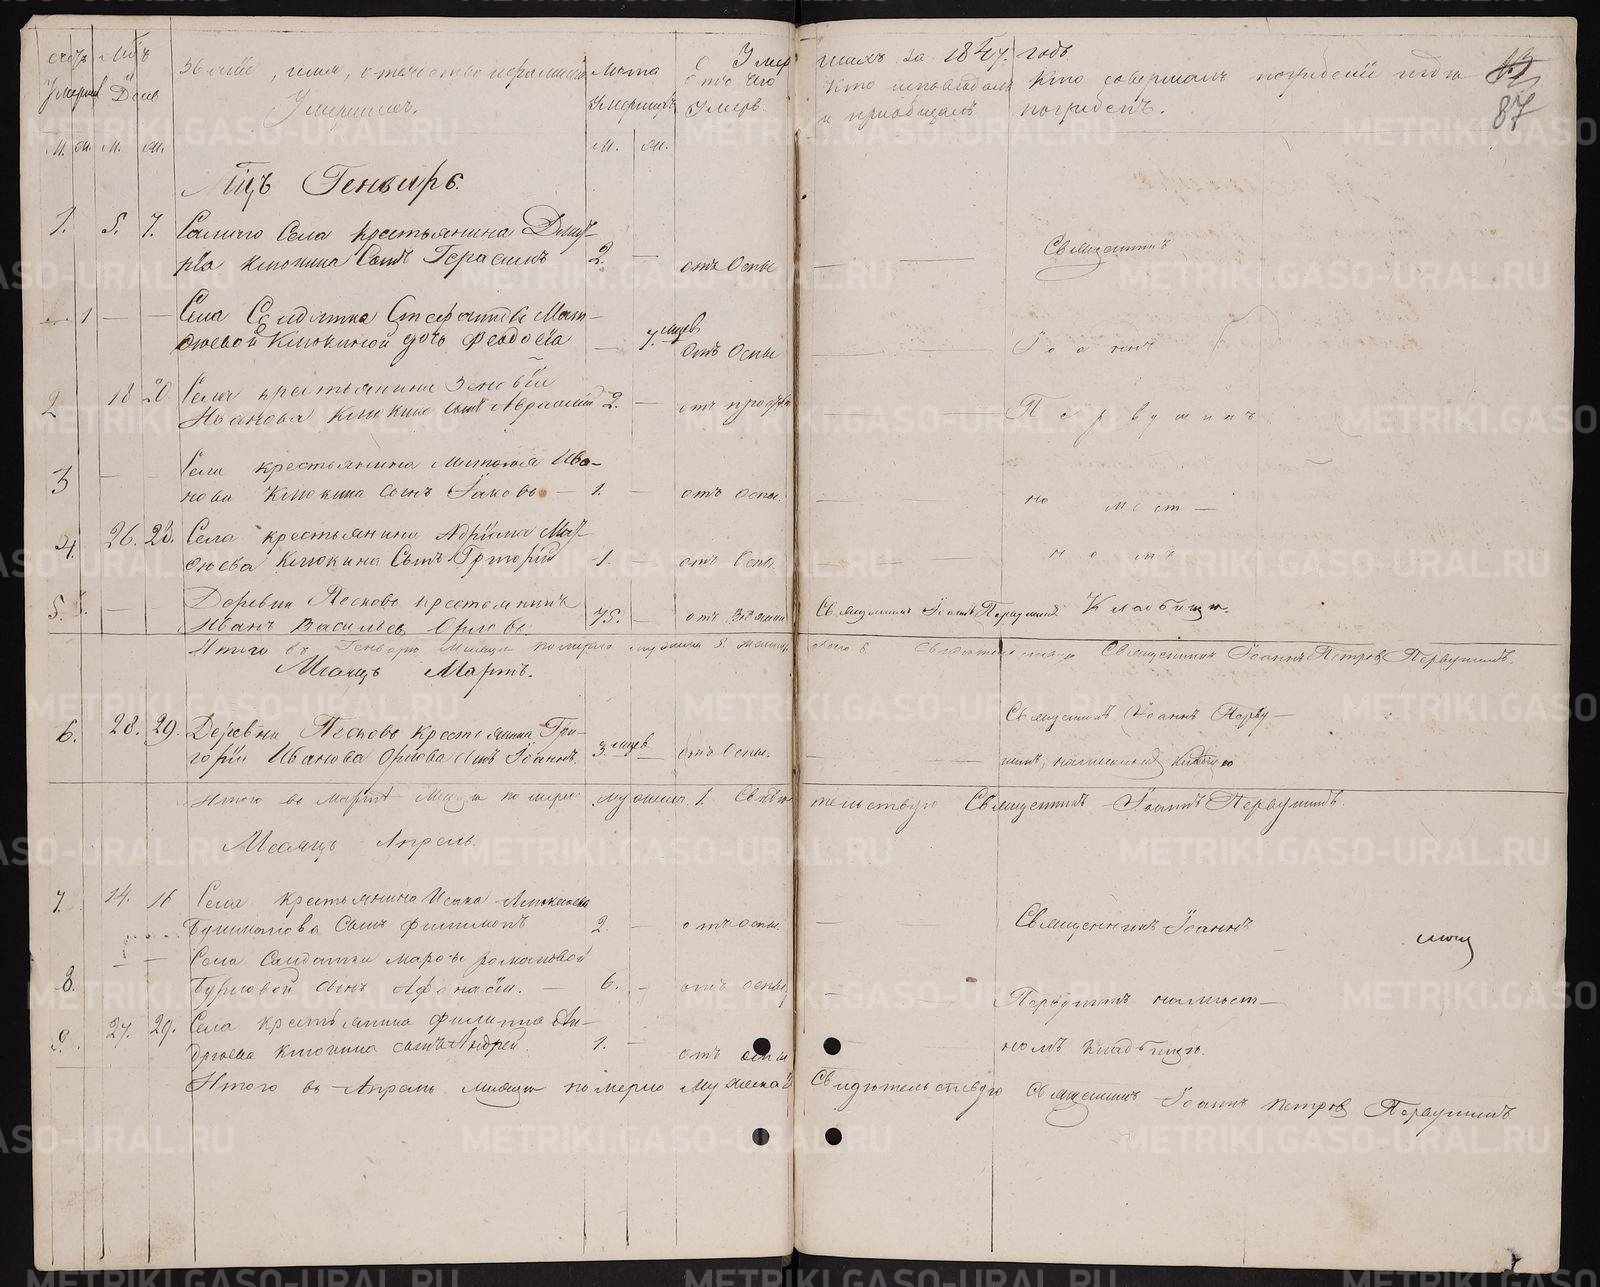 счетъ Мцъ Званіе, имя, отечество и фамилія Лѣта отъ чего
Умершихъ День Умершихъ. Умершихъ Умеръ.
О Умершихъ за 1847. годъ
Кто исповѣдалъ Кто совершалъ погребеніе и гдѣ
и пріобщалъ погребенъ.
87
М. ж. М. ж. М. ж.
Мцъ Генварь.
1. 5. 7. Самаго Села крестьянина Дмит-
рія Клюкина Сынъ Герасимъ 2. — отъ Оспы — Священникъ
1 — — Села Солдатки Стефаниды Мат-
ѳеевой Клюкиной дочь Феодосія — 7. мцев отъ Оспы Іоаннъ
2 18 20 Села крестьянина Зиновія
Иванова Клюкина сынъ Авраамій 2. — отъ Первушинъ
3 — Села крестьянина Ива-
нова Клюкина сынъ Іаковъ — 1. — отъ оспы. — на мѣст-
4. 26. 28. Села крестьянина Адріана Мат-
ѳеева Клюкина Сынъ Григорій 1. — отъ Оспы — номъ
5. — — Деревни Пескова крестьянинъ
Иванъ Васильевъ Орловъ 75. — отъ Священникъ Іоаннъ Первушинъ Кладбищѣ.
Итого въ Генварѣ Месяцѣ померло мужеска 5. женска Священникъ Іоаннъ Петровъ Первушинъ.
Месяцъ Мартъ.
6. 28. 29. Деревни Пескова Крестьянина Гри-
горія Иванова Орлова сынъ Іоаннъ. 3 мцев — отъ Оспы. — Священникъ Іоаннъ Перву-
шинъ,
Итого въ Мартѣ Месяцѣ померло мужеск. 1. Свидѣтельствую Священникъ Іоаннъ Первушинъ.
Месяцъ Апрель.
7. 14. 16 Села крестьянина Исака Алексѣева
Сынъ Филимонъ 2. — отъ оспы. — Священникъ Іоаннъ
— — Села Солдатки Марѳы Романовой
8. Бурловой сынъ Афонасій. — 6. — отъ оспы — Первушинъ на мѣст-
9. 27. 29. Села крестьянина Филиппа Ан-
дреева Клюкина сынъ Андрей. 1. — отъ оспы номъ кладбищѣ.
Итого въ Апрелѣ месяцѣ померло Мужеска Свидѣтельствую Священникъ Іоаннъ Петровъ Первушинъ
METRIKI.GASO-URAL.RU